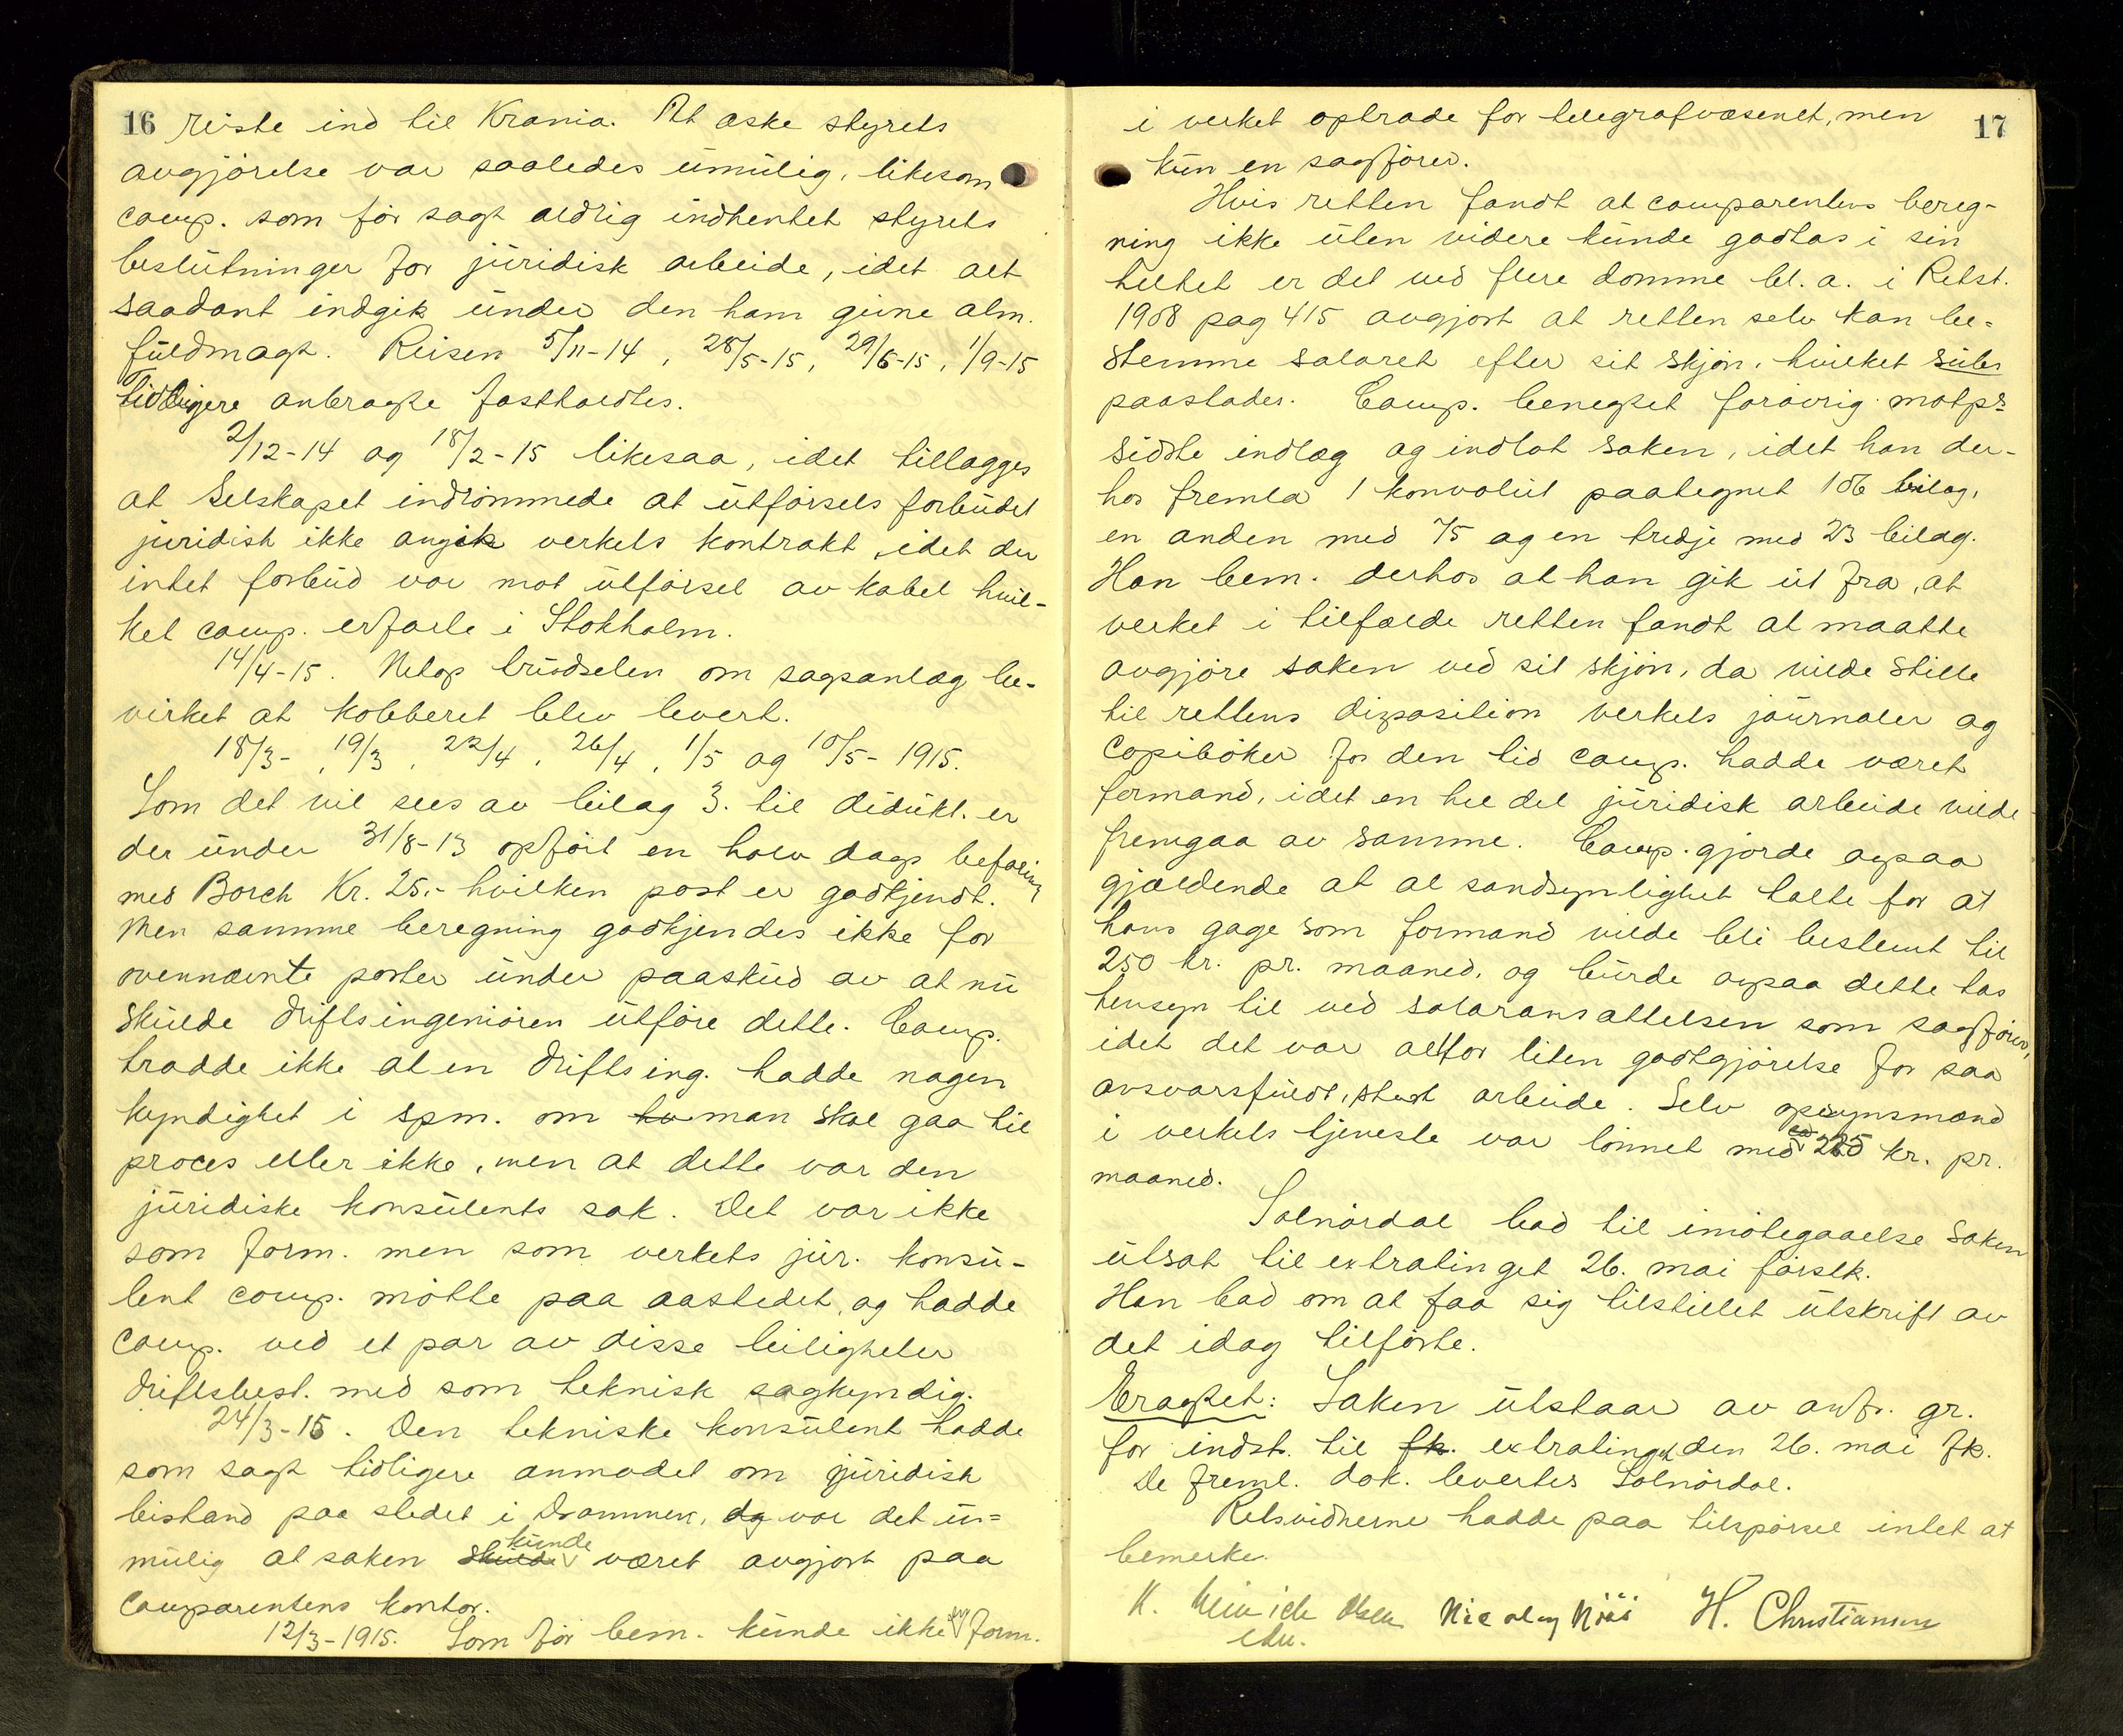 16
reiste ind til Krania. At æske styrets
avgjörelse var saaledes umulig, likesom
comp. som för sagt aldrig indhentet styrets
beslutninger for juridisk arbeide, idet alt
saadant indgik under den ham givne alm.
fuldmagt. Reisen 5/11-14, 28/5-15, 29/6-15, 1/9-15
Tidligere anbragte fastholdtes.
2/12-14 og 18/2-15 likesaa, idet tillægges
at Selskapet indrömmede at utförselsforbudet
juridisk ikke angik verkets kontrakt, idet der
intet forbud var mot utförsel av kabel hvil-
ket comp. erfarte i Stokholm.
14/4-15. Netop trudselen om sagsanlæg be-
virket at kobberet blev levert.
18/3-, 19/3, 22/4, 26/4, 1/5 og 10/5-1915.
Som det vil sees av bilag 3. til didukt. er
der under 31/8-13 opfört en halv dags befaring
med Borch Kr. 25.- hvilken post er godkjendt.
Men samme beregning godkjendes ikke for
ovennævnte poster under paaskud av at nu
skulde driftsingeniören utföre dette. Comp.
trodde ikke at en driftsing. hadde nogen
kyndighet i spm. om hv man skal gaa til
proces eller ikke, men at dette var den
juridiske konsulents sak. Det var ikke
som form. men som verkets jur. konsu-
lent comp. mötte paa aastedet, og hadde
comp. ved et par av disse leiligheter
driftsbest. med som teknisk sagkyndig.
24/3-15. Den tekniske konsulent hadde
som sagt tidligere anmodet om juridisk
bistand paa stedet i Drammen, og var det u-
mulig at saken skulde kunde været avgjort paa
Comparentens kontor.
12/3-1915. Som för bem. kunde ikke form.
17
i verket optræde for telegrafvæsenet, men
kun en sagförer.
Hvis retten fandt at comparentens bereg-
ning ikke uten videre kunde godtas i sin
helhet er det ved flere domme bl. a. i Retst.
1908 pag 415 avgjort at retten selv kan be-
stemme salæret efter sit skjön, hvilket subs
paastodes. Comp. benegtet forövrig motps
sidste indlæg og indlot saken, idet han der-
hos fremla 1 konvolut paategnet 106 bilag,
en anden med 75 og en tredje med 23 bilag.
Han bem. derhos at han gik ut fra, at
verket i tilfælde retten fandt at maatte
avgjöre saken ved sit skjön, da vilde stille
til rettens disposition verkets journaler og
Copiböker for den tid comp. hadde været
formand, idet en hel del juridisk arbeide vilde
fremgaa av samme. Comp. gjorde ogsaa
gjældende at al sandsynlighet talte for at
hans gage som formand vilde bli bestemt til
250 kr. pr. maaned, og burde ogsaa dette tas
hensyn til ved salæransættelsen som sagförer,
idet det var altfor liten godtgjörelse for saa
ansvarsfuldt, arbeide. Selv opsynsmænd
i verkets tjeneste var lönnet med ca 225 kr. pr.
maaned.
Solnördal bad til imötegaaelse saken
utsat til extratinget 26. mai förstk.
Han bad om at faa sig tilstillet utskrift av
det idag tilförte.
Eragtet: Saken utstaar av anf. gr.
for indst. til fk. extratinget den 26. mai fk.
De freml. dok. levertes Solnördal.
Retsvidnerne hadde paa tilspörsel intet at
bemerke.
K. Nicolay H. Christiansen